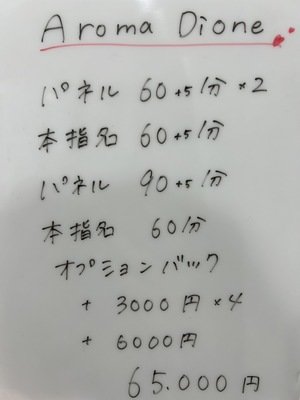 Aroma Dione
パネル 60+5分 ×2
本指名 60+5分
パネル 90+5分
本指名 60分
オプションバック
+ 3000円 ×4
+ 6000円
65.000円